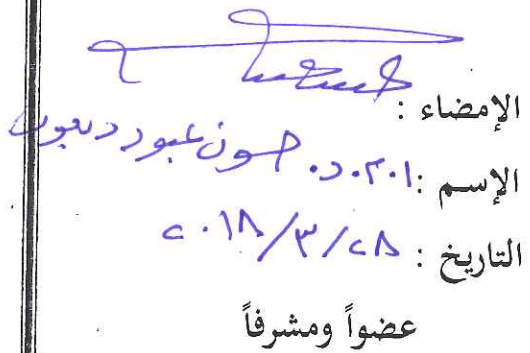 الإمضاء :
الإسم : ا.م.د. حسون عبود دبعون
التاريخ : ٢٠١٨/٣/٢٨
عضواً ومشرفاً